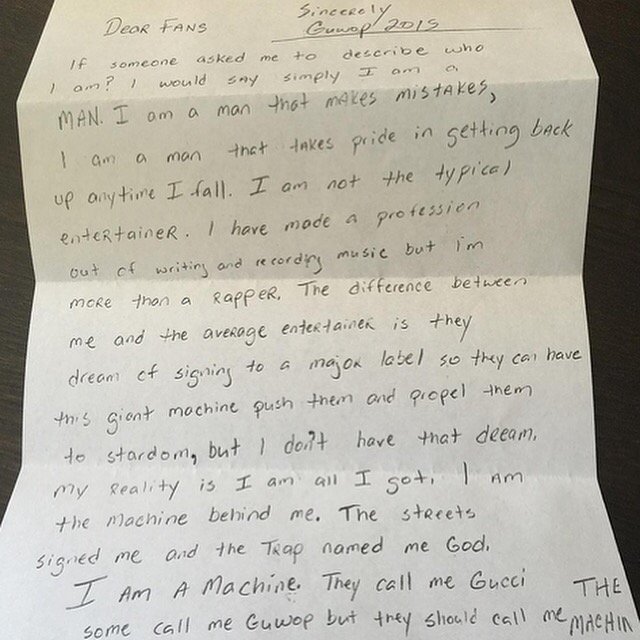 Sincerely
Dear Fans Guwop 2015
If someone asked me to describe who
I am? I would say simply I am a
MAN. I am a man that makes mistakes,
I am a man that takes pride in getting back
up anytime I fall. I am not the typical
entertainer. I have made a profession
out of writing and recording music but i'm
more than a rapper. The difference between
me and the average entertainer is they
dream of signing to a major label so they can have
this giant machine push them and propel them
to stardom, but I don't have that dream.
My reality is I am all I got. I am
the machine behind me. The streets
signed me and the Trap named me God.
I Am A Machine. They call me Gucci
some call me Guwop but they should call me THE
MACHIN